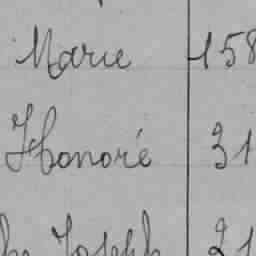 Marie 158
Honoré 31
Joseph 21